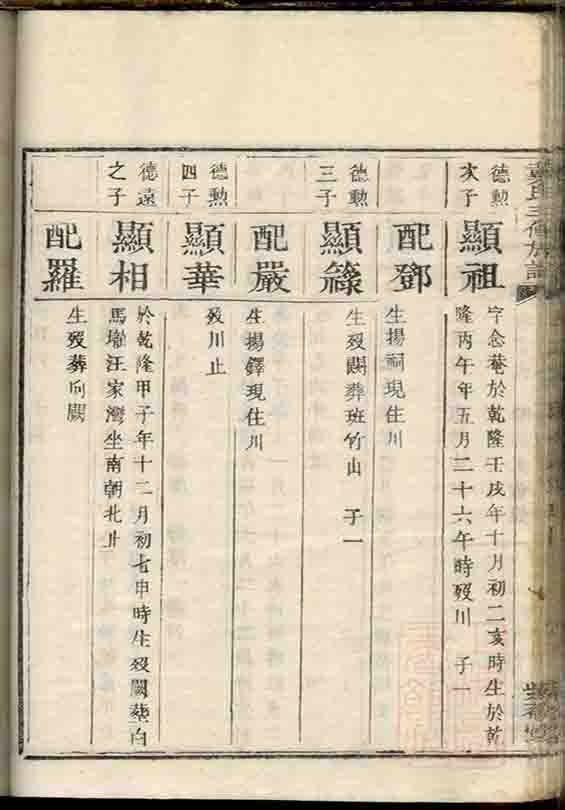 德勲
次子
顯祖
字念菴於乾隆壬戌年十月初二亥時生於乾
隆丙午年五月二十六午時歿川 子一
配鄧
生揚嗣現住川
德勲
三子
顯籙
生歿闕葬班竹山 子一
配嚴
生揚鐸現住川
德勲
四子
顯華
歿川止
德遠
之子
顯相
於乾隆甲子年十二月初七申時生歿闕塟白
馬壋汪家灣坐南朝北止
配羅
生歿葬向闕